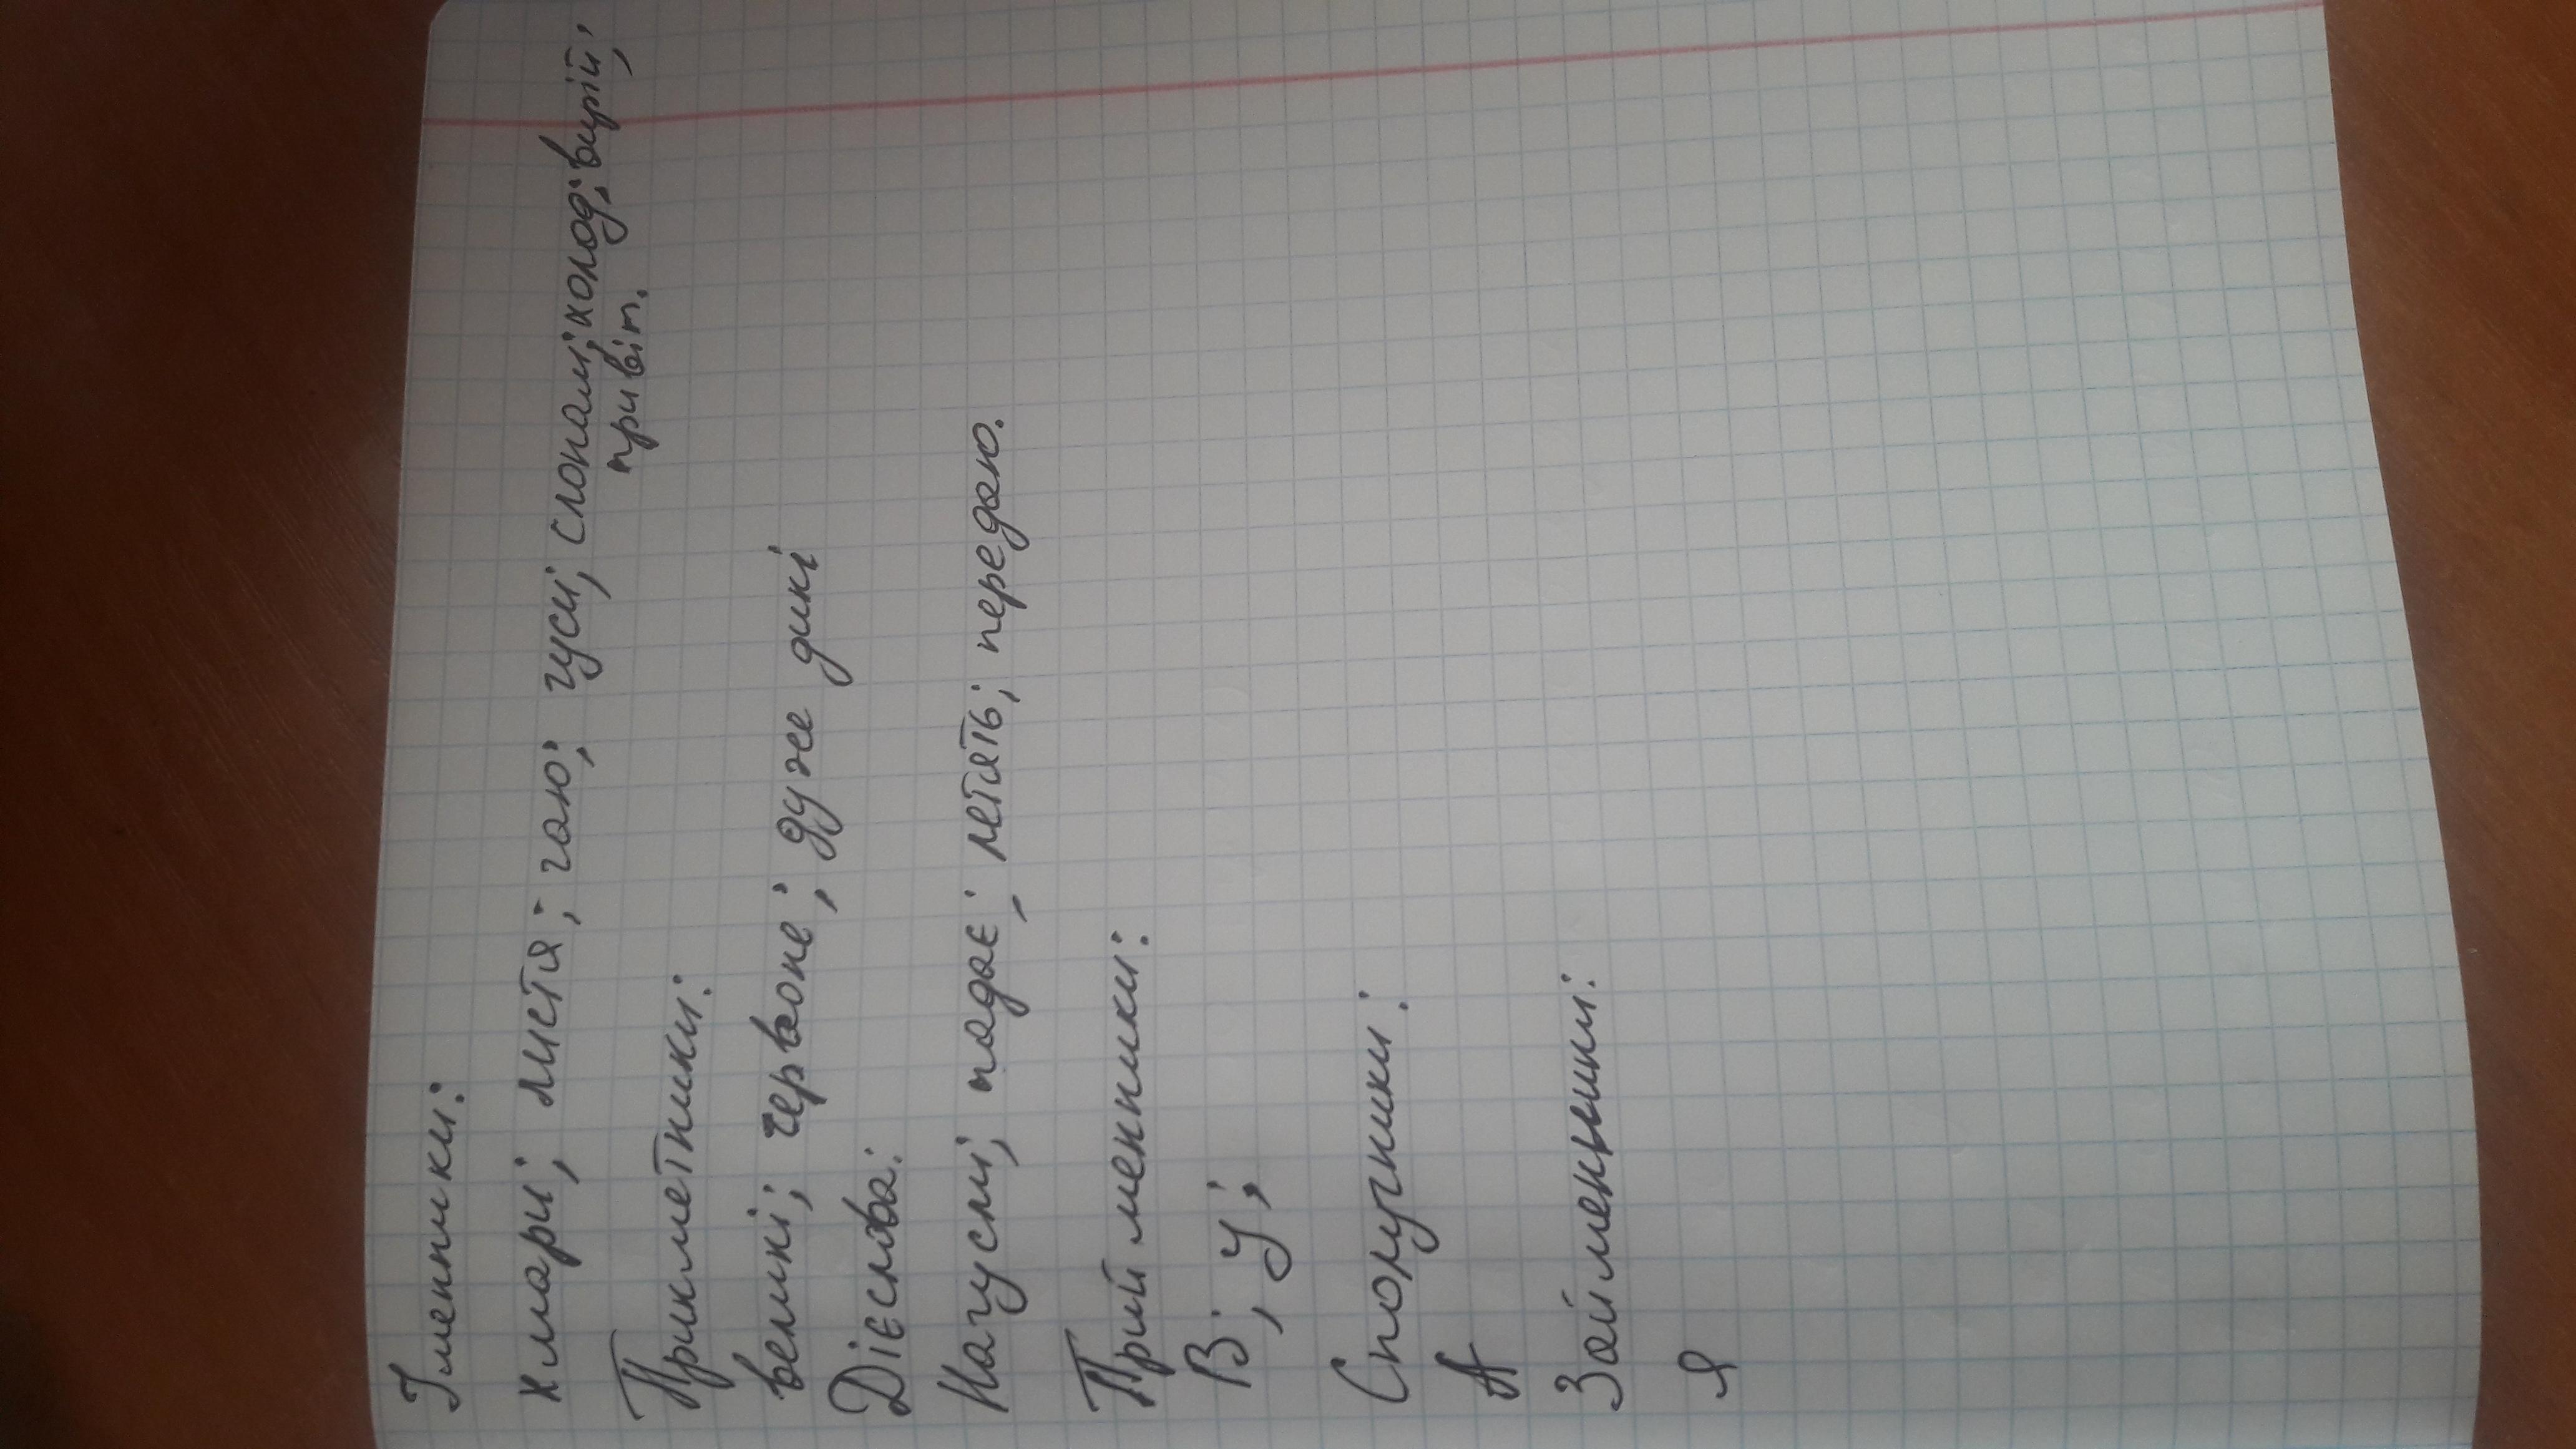 Іменники:
хмари; листя; гаю; гуси; слонам; холод; вирій;
привіт.
Прикметники:
великі; червоне; дуже дикі
Дієслова:
Нагусмі; падає; летять; передаю.
Прийменники:
В; У;
Сполучники:
А
Займенники:
я